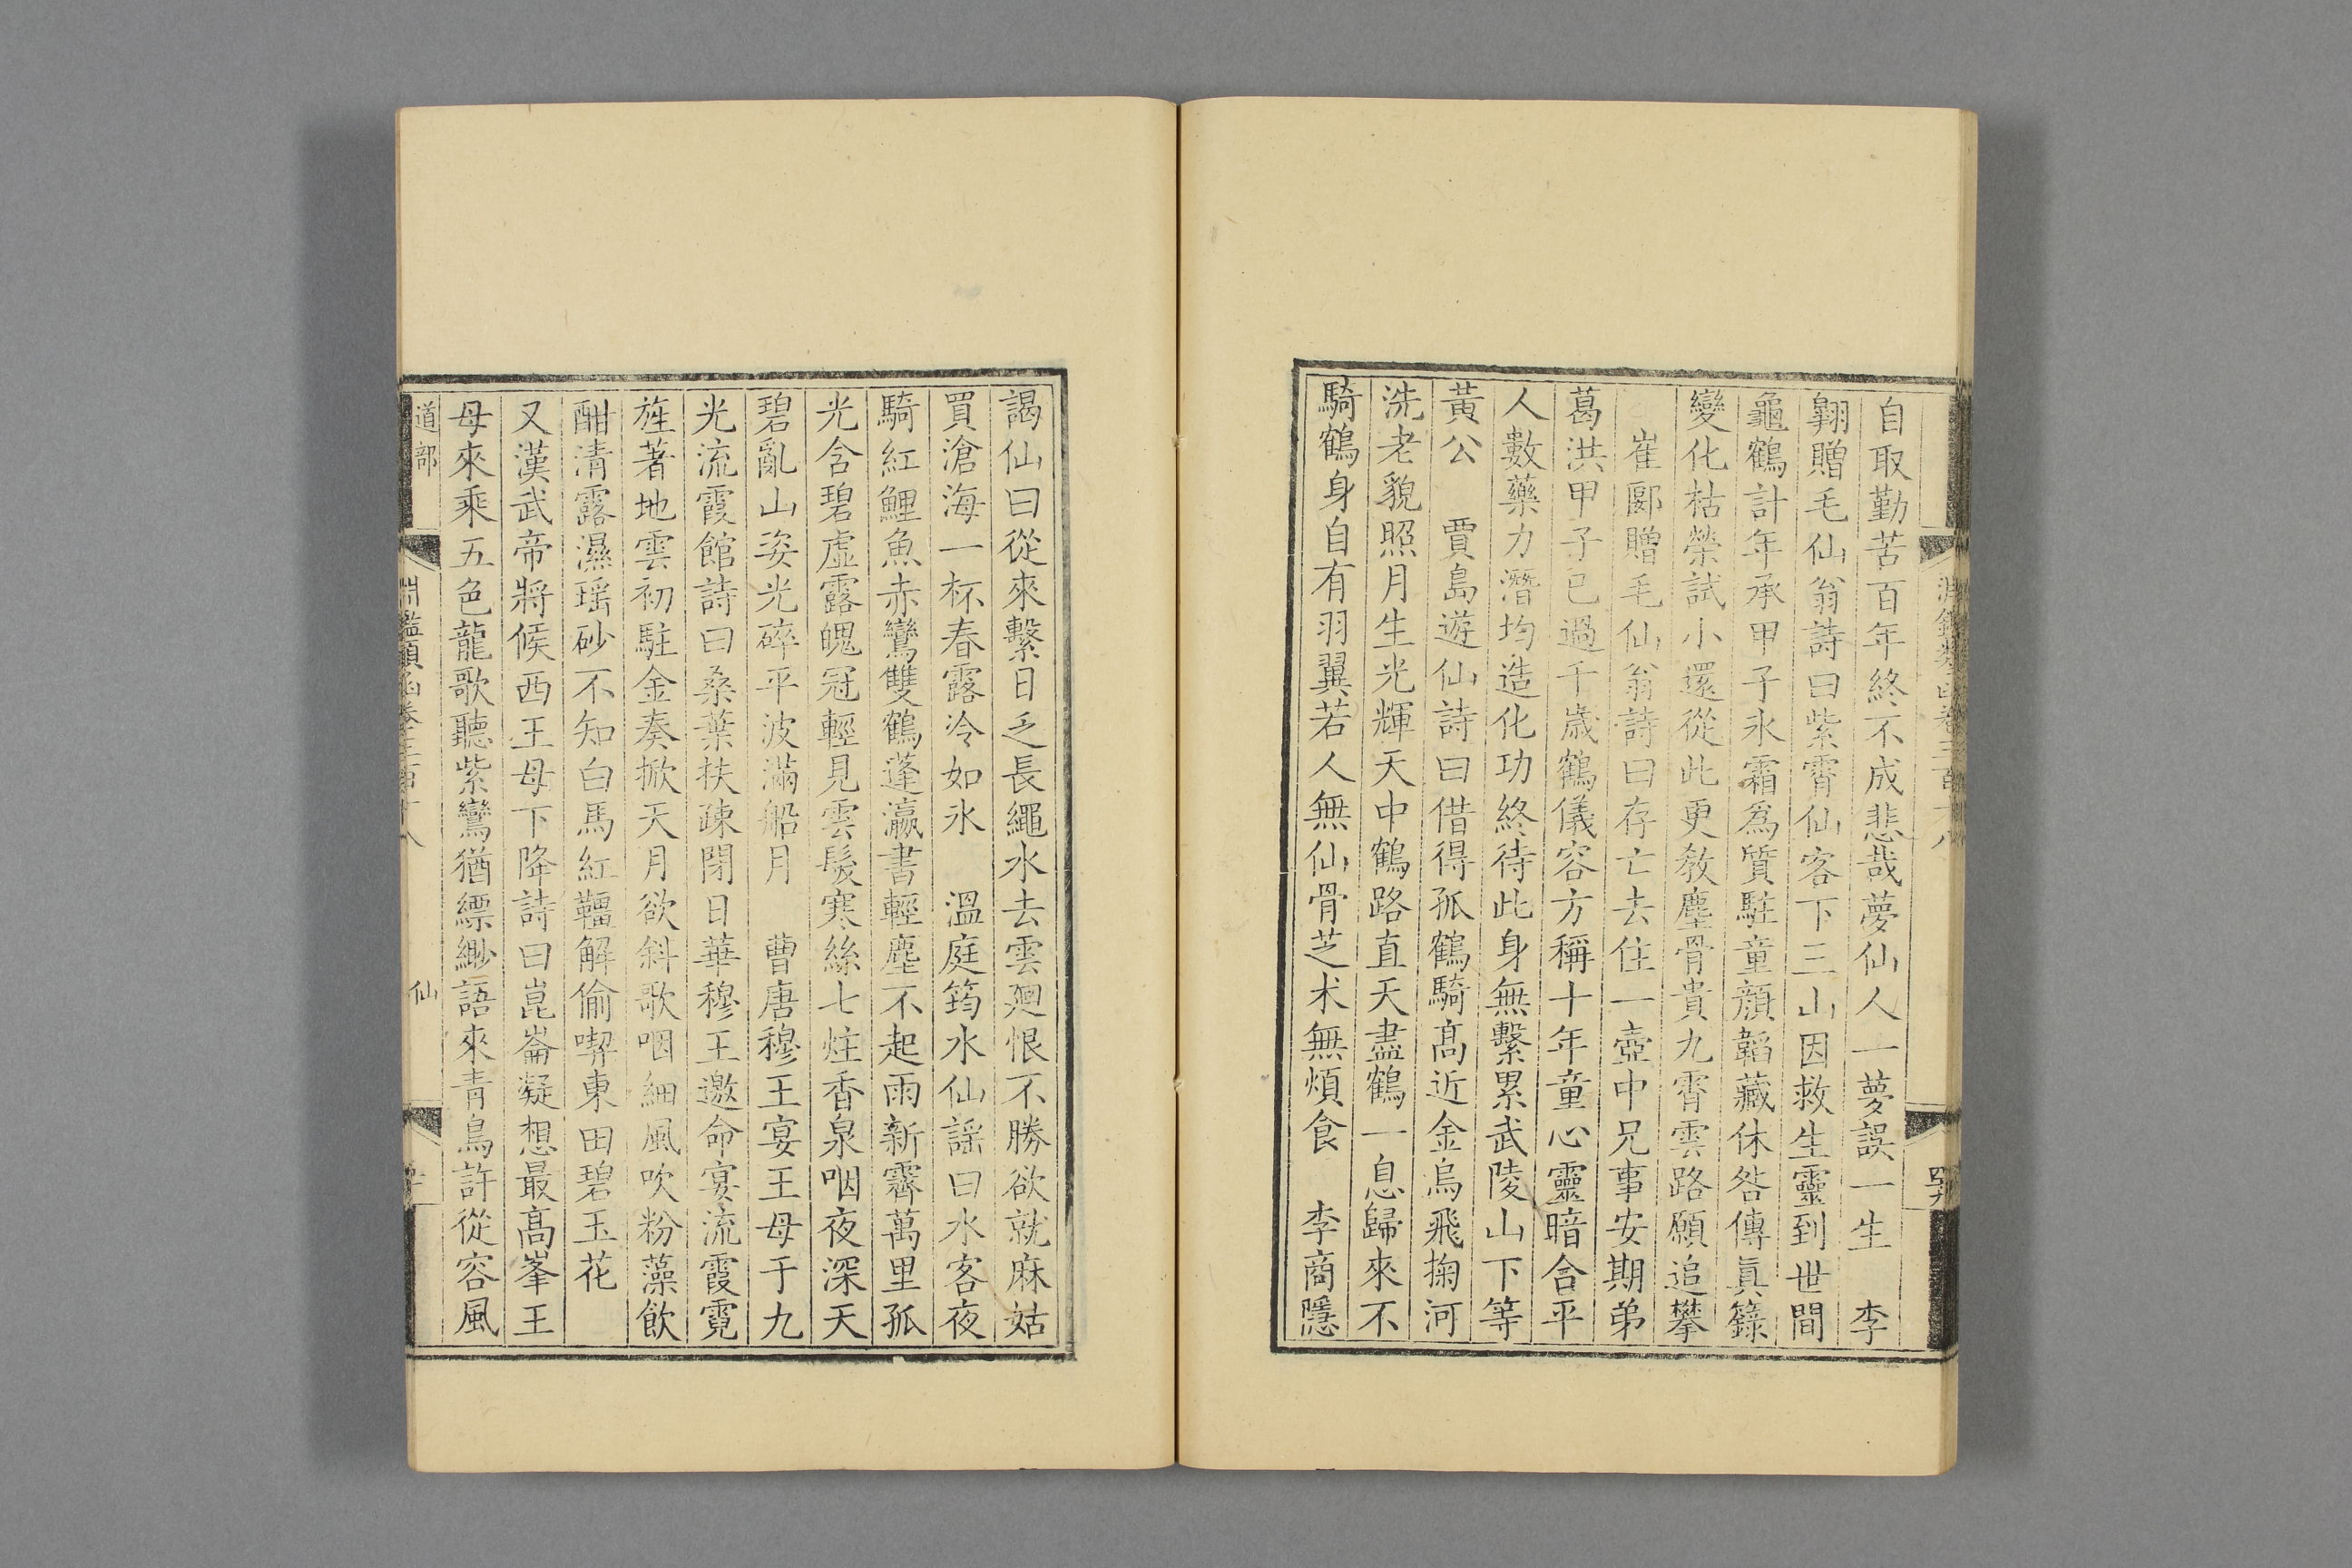 自取勤苦百年終不成悲哉夢仙人一夢誤一生 李
翺贈毛仙翁詩曰紫霄仙客下三山因救生靈到世間
龜鶴計年承甲子氷霜爲質駐童顔韜藏休咎傳眞籙
變化枯榮試小還從此更敎塵骨貴九霄雲路願追攀
崔郾贈毛仙翁詩曰存亡去住一壺中兄事安期弟
葛洪甲子已過千歲鶴儀容方稱十年童心靈暗合平
人數藥力潛均造化功終待此身無繫累武陵山下等
黃公 賈島遊仙詩曰借得孤鶴騎髙近金烏飛掬河
洗老貌照月生光輝天中鶴路直天盡鶴一息歸來不
騎鶴身自有羽翼若人無仙骨芝术無煩食 李商隱
謁仙曰從來繫日乏長繩水去雲廻恨不勝欲就麻姑
買滄海一杯春露冷如氷 溫庭筠水仙謡曰水客夜
騎紅鯉魚赤鸞雙鶴蓬瀛書輕塵不起雨新霽萬里孤
光含碧虛露魄冠輕見雲髮寒絲七炷香泉咽夜深天
碧亂山姿光碎平波滿船月 曹唐穆王宴王母于九
光流霞館詩曰桑葉扶疎閉日華穆王邀命宴流霞霓
旌著地雲初駐金奏掀天月欲斜歌咽細風吹粉藻飲
酣清露濕瑶砂不知白馬紅韁解偷喫東田碧玉花
又漢武帝將候西王母下降詩曰崑崙凝想最髙峯王
母來乘五色龍歌聽紫鸞猶縹緲語來青鳥許從容風
道部
淵鑑類函卷三百十八
仙